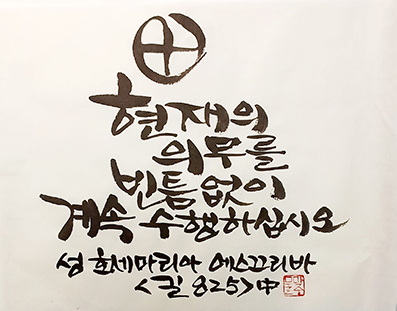 현재의
의무를
빈틈없이
계속 수행하십시오
성 호세마리아 에스끄리바
<길 825> 中